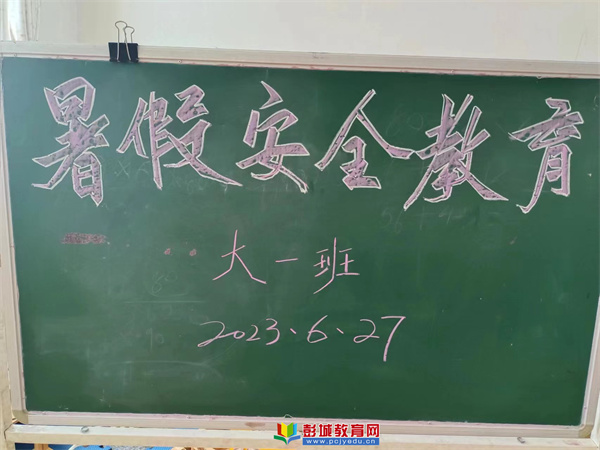 暑假安全教育
大一班
2023、6、27
彭城教育网
www.pcjyedu.cn